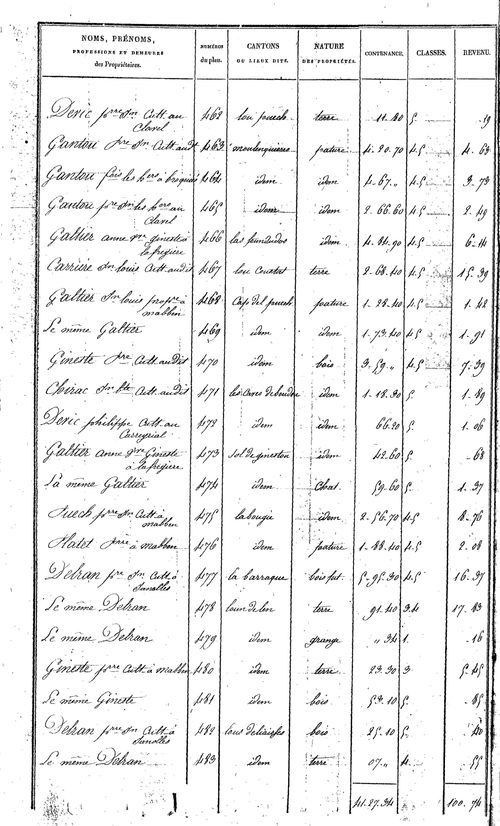 NOMS, PRÉNOMS, PROFESSIONS ET DEMEURES des Propriétaires. NUMÉROS du plan. CANTONS OU LIEUX DITS. NATURE DES PROPRIÉTÉS. CONTENANCE. CLASSES. REVENU.
Deric p.rre j.n Cult. au Clavel 462 lou puech terre 11.40 5 .19
Gantou p.rre j.n Cult. audt 463 moulenquieres pature 4.20.70 4.5 4.63
Gantou les h.ers à broquiès 464 idem idem 4.67.„ 4.5 3.73
Gantou p.rre j.n les h.ers au Clavel 465 idem idem 2.66.60 4.5 2.49
Galtier anne v.ve gineste à lafregiere 466 idem 4.84.90 4.5 6.14
Carrière j.n louis Cult. audit 467 lou Coustat terre 2.68.40 4.5 15.39
Galtier j.n louis prop.re à mabbin 468 Cap del puech pature 1.28.40 4.5 1.42
Le même Galtier 469 idem idem 1.73.40 4.5 1.91
Gineste p.rre Cult. audit 470 idem bois 3.59.„ 4.5 7.39
Chirac j.n b.te Cult. audit 471 idem 1.18.30 5 1.89
Deric philippe Cult. au Carreyrial 472 idem idem 66.20 5 1.06
Galtier anne v.ve Gineste à lafregiere 473 sol de gineston idem 42.60 5 .68
La même Galtier 474 idem Chat. 59.60 5 1.37
Puech p.rre j.n Cult. à mabbin 475 labougio idem 2.56.70 4.5 8.76
Platet à mabbin 476 idem pature 1.88.40 4.5 2.08
Delran p.rre j.n Cult. à Sanolles 477 la barraque bois fut. 5.95.30 4.5 16.37
Le même Delran 478 terre 91.40 3.4 17.43
Le même Delran 479 idem grange „.34 1. .16
Gineste p.rre Cult. à mabbin 480 idem terre 23.30 3 5.45
Le même Gineste 481 idem bois 53.10 5 .85
Delran p.rre j.n Cult. à Sanolles 482 bois 25.10 5 .40
Le même Delran 483 idem terre 07.„ 4. .55
41.27.34 100.74